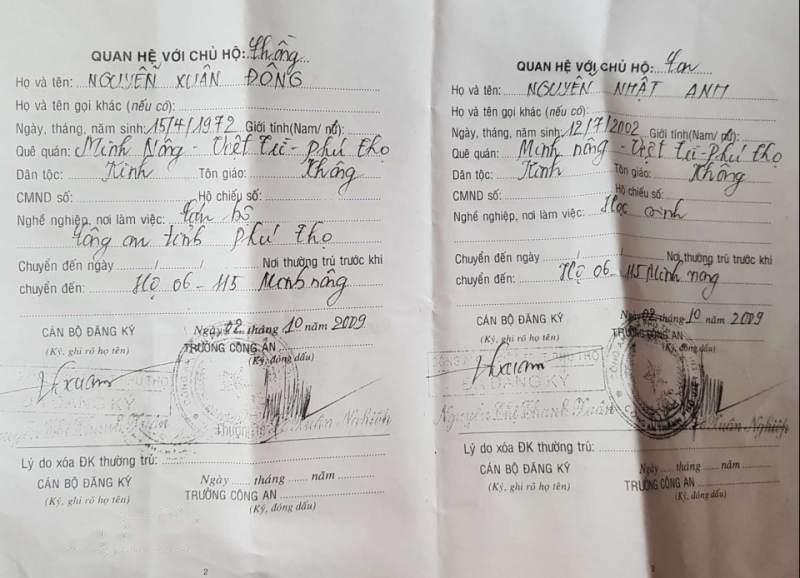 QUAN HỆ VỚI CHỦ HỘ: Chồng
Họ và tên: NGUYỄN XUÂN ĐÔNG
Họ và tên gọi khác (nếu có):
Ngày, tháng, năm sinh: 15/4/1972 Giới tính(Nam/ nữ):
Quê quán: Minh Nông - Việt Trì - Phú Thọ
Dân tộc: Kinh Tôn giáo: Không
CMND số: Hộ chiếu số:
Nghề nghiệp, nơi làm việc: Cán bộ
Công an tỉnh Phú Thọ
Chuyển đến ngày ....../....../...... Nơi thường trú trước khi
chuyển đến: Hộ 06 - 115 Minh nông
CÁN BỘ ĐĂNG KÝ
(Ký, ghi rõ họ tên)
Ngày 02 tháng 10 năm 2009
TRƯỞNG CÔNG AN
(Ký, đóng dấu)
ĐĂNG KÝ
Nguyễn Thị Thanh Xuân
Xuân Nghiêh
Lý do xóa ĐK thường trú:
CÁN BỘ ĐĂNG KÝ
(Ký, ghi rõ họ tên)
Ngày ...... tháng ...... năm ......
TRƯỞNG CÔNG AN
(Ký, đóng dấu)
2
QUAN HỆ VỚI CHỦ HỘ: Con
Họ và tên: NGUYỄN NHẬT ANH
Họ và tên gọi khác (nếu có):
Ngày, tháng, năm sinh: 12/7/2002 Giới tính(Nam/ nữ):
Quê quán: Minh nông - Việt Trì - Phú Thọ
Dân tộc: Kinh Tôn giáo: Không
CMND số: Hộ chiếu số:
Nghề nghiệp, nơi làm việc: Học sinh
Chuyển đến ngày ....../....../...... Nơi thường trú trước khi
chuyển đến: Hộ 06 - 115 Minh nông
CÁN BỘ ĐĂNG KÝ
(Ký, ghi rõ họ tên)
Ngày 02 tháng 10 năm 2009
TRƯỞNG CÔNG AN
(Ký, đóng dấu)
ĐĂNG KÝ
Nguyễn Thị Thanh Xuân
Xuân Nghiêh
Lý do xóa ĐK thường trú:
CÁN BỘ ĐĂNG KÝ
(Ký, ghi rõ họ tên)
Ngày ...... tháng ...... năm ......
TRƯỞNG CÔNG AN
(Ký, đóng dấu)
3